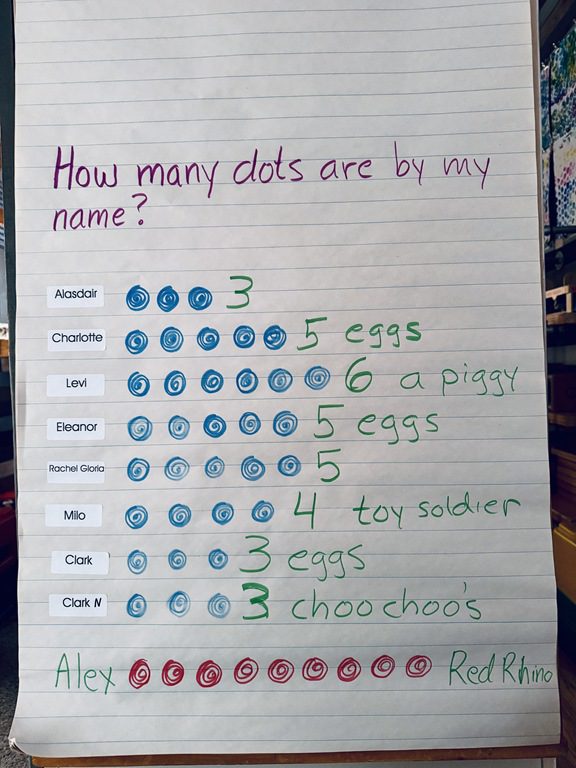 How many dots are by my
name?
Alasdair 3
Charlotte 5 eggs
Levi 6 a piggy
Eleanor 5 eggs
Rachel Gloria 5
Milo 4 toy soldier
Clark 3 eggs
Clark N 3 choo choo's
Alex Red Rhino